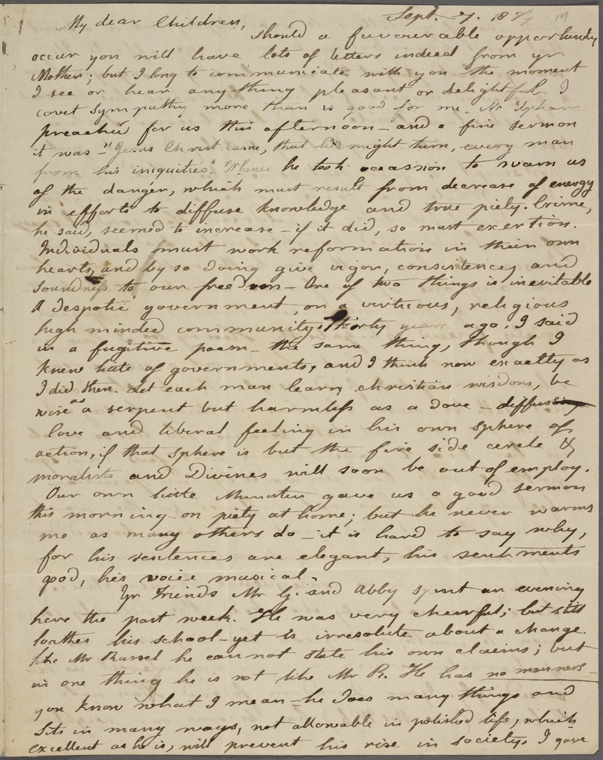 Sept. 7. 18
My dear Children,
Should a favourable opportunity
occur you will have lots of letters indeed from yr
Mother; but I long to communicate with you the moment
I see or hear any thing pleasant or delightful. I
covet sympathy more than is good for me. Mr Upham
preached for us this afternoon - and a fine sermon
it was - "Jesus Christ came, that he might turn, every man
from his iniquities". Whence he took occassion to warn us
of the danger, which must result from decrease of energy
in efforts to diffuse knowledge and true piety. Crime,
he said, seemed to increase - if it did, so must exertion.
Individuals must work reformation in their own
hearts, and by so doing give vigor, consistency and
soundness to our freedom - One of two things is inevitable
A despotic government, or a virtuous, religious
high minded community. Thirty years ago, I said
in a fugitive poem - the same thing, though I
knew little of governments, and I think now exactly as
I did then. Let each man learn christian wisdom, be
wise as a serpent but harmless as a dove - diffusing
love and liberal feeling in his own sphere of
action, if that sphere is but the fire side circle &
moralists and Divines will soon be out of employ.
Our own little Minister gave us a good sermon
this morning - on piety at home; but he never warms
me as many others do - it is hard to say why,
for his sentences are elegant, his sentiments
good, his voice musical.
Yr Friends Mr G. and Abby spent an evening
here the past week. He was very cheerful; but still
loathes his school - yet is irresolute about a change.
like Mr Russel he can not state his own claims; but
in one thing he is not like Mr R. He has no manners
you know what I mean - he does many things and
sits in many ways, not allowable in polished life, which
excellent as he is, will prevent his rise in society. I gave